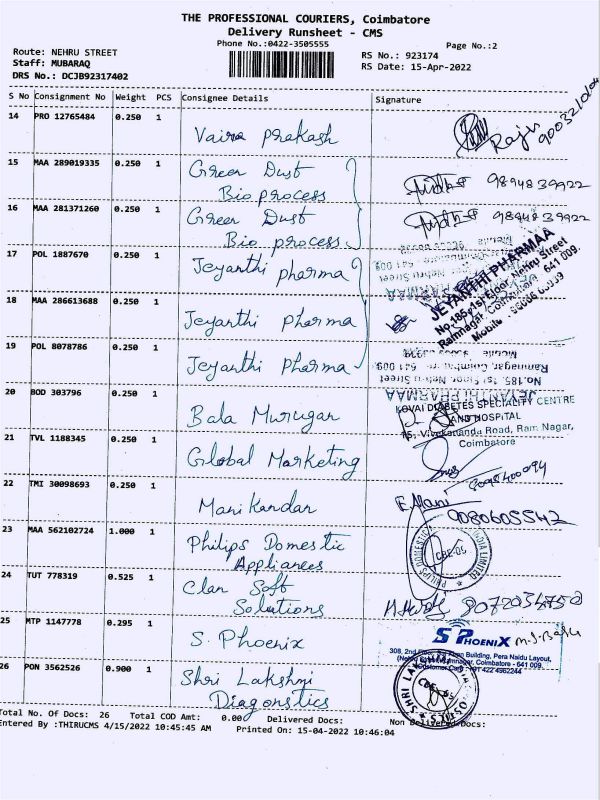 THE PROFESSIONAL COURIERS, Coimbatore
Delivery Runsheet - CMS
Phone No.:0422-3505555
Page No.:2
Route: NEHRU STREET
Staff: MUBARAQ
DRS No.: DCJB92317402
RS No.: 923174
RS Date: 15-Apr-2022
S No Consignment No Weight PCS Consignee Details Signature
14 PRO 12765484 0.250 1
Vaira Prakash
Raju
15 MAA 289019335 0.250 1
Green Dust
Bio process
9894839922
16 MAA 281371260 0.250 1
Green Dust
Bio process
9894839922
17 POL 1887670 0.250 1
Jeyanthi pharma
JEYANTHI PHARMAA
No.185, 1st Floor, Nehru Street
Ramnagar, Coimbatore - 641 009.
18 MAA 286613688 0.250 1
Jeyanthi pharma
19 POL 8078786 0.250 1
Jeyanthi Pharma
JEYANTHI PHARMAA
No.185, 1st Floor, Nehru Street
Ramnagar, Coimbatore - 641 009
20 BOD 303796 0.250 1
Bala Murugan
KOVAI DIABETES SPECIALITY CENTRE
AND HOSPITAL
15, Vivekananda Road, Ram Nagar,
Coimbatore
21 TVL 1188345 0.250 1
Global Marketing
8098400094
22 TMI 30098693 0.250 1
Mani Kandan
E. Mani
9080605542
23 MAA 562102724 1.000 1
Philips Domestic
Appliances
PHILIPS DOMESTIC INDIA LIMITED
CBE-05
24 TUT 778319 0.525 1
Clan Soft
Solutions
8072034750
25 MTP 1147778 0.295 1
S. Phoenix
S PHOENIX
308, 2nd Floor, Building, Pera Naidu Layout,
Ramnagar, Coimbatore - 641 009,
Customer Care : +91 422 4962244
26 PON 3562526 0.900 1
Shri Lakshmi
Diagonstics
SHRI
Total No. Of Docs: 26 Total COD Amt: 0.00 Delivered Docs: Non Delivered Docs:
Entered By :THIRUCMS 4/15/2022 10:45:45 AM Printed On: 15-04-2022 10:46:04